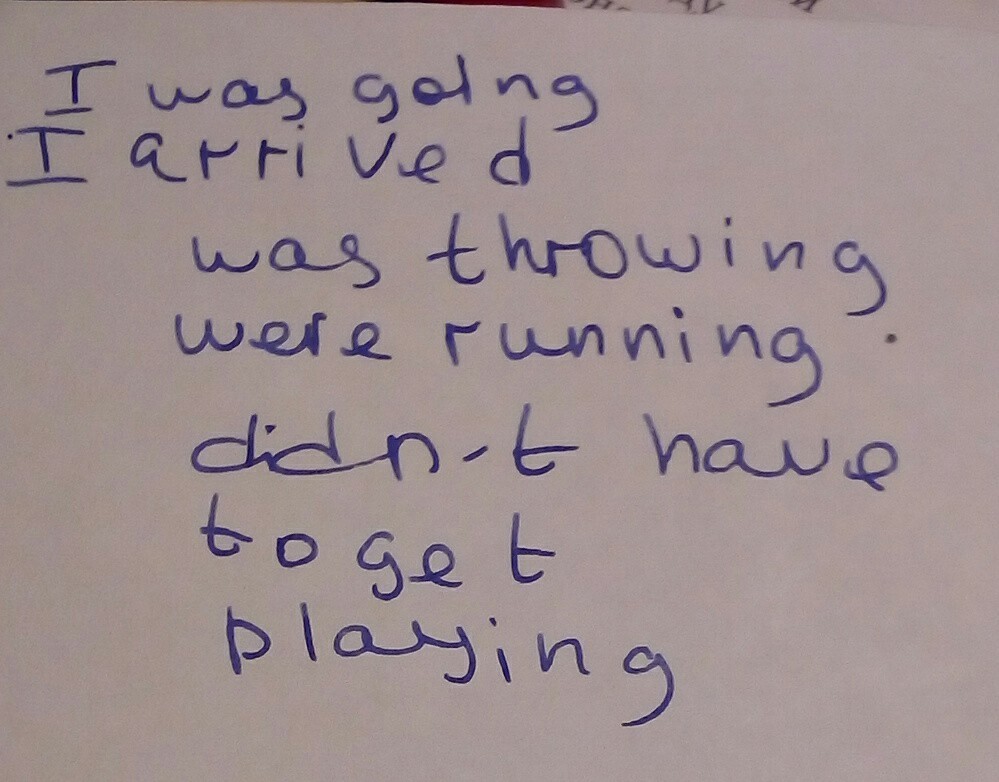 I was going
I arrived
was throwing
were running
didn't have
to get
playing